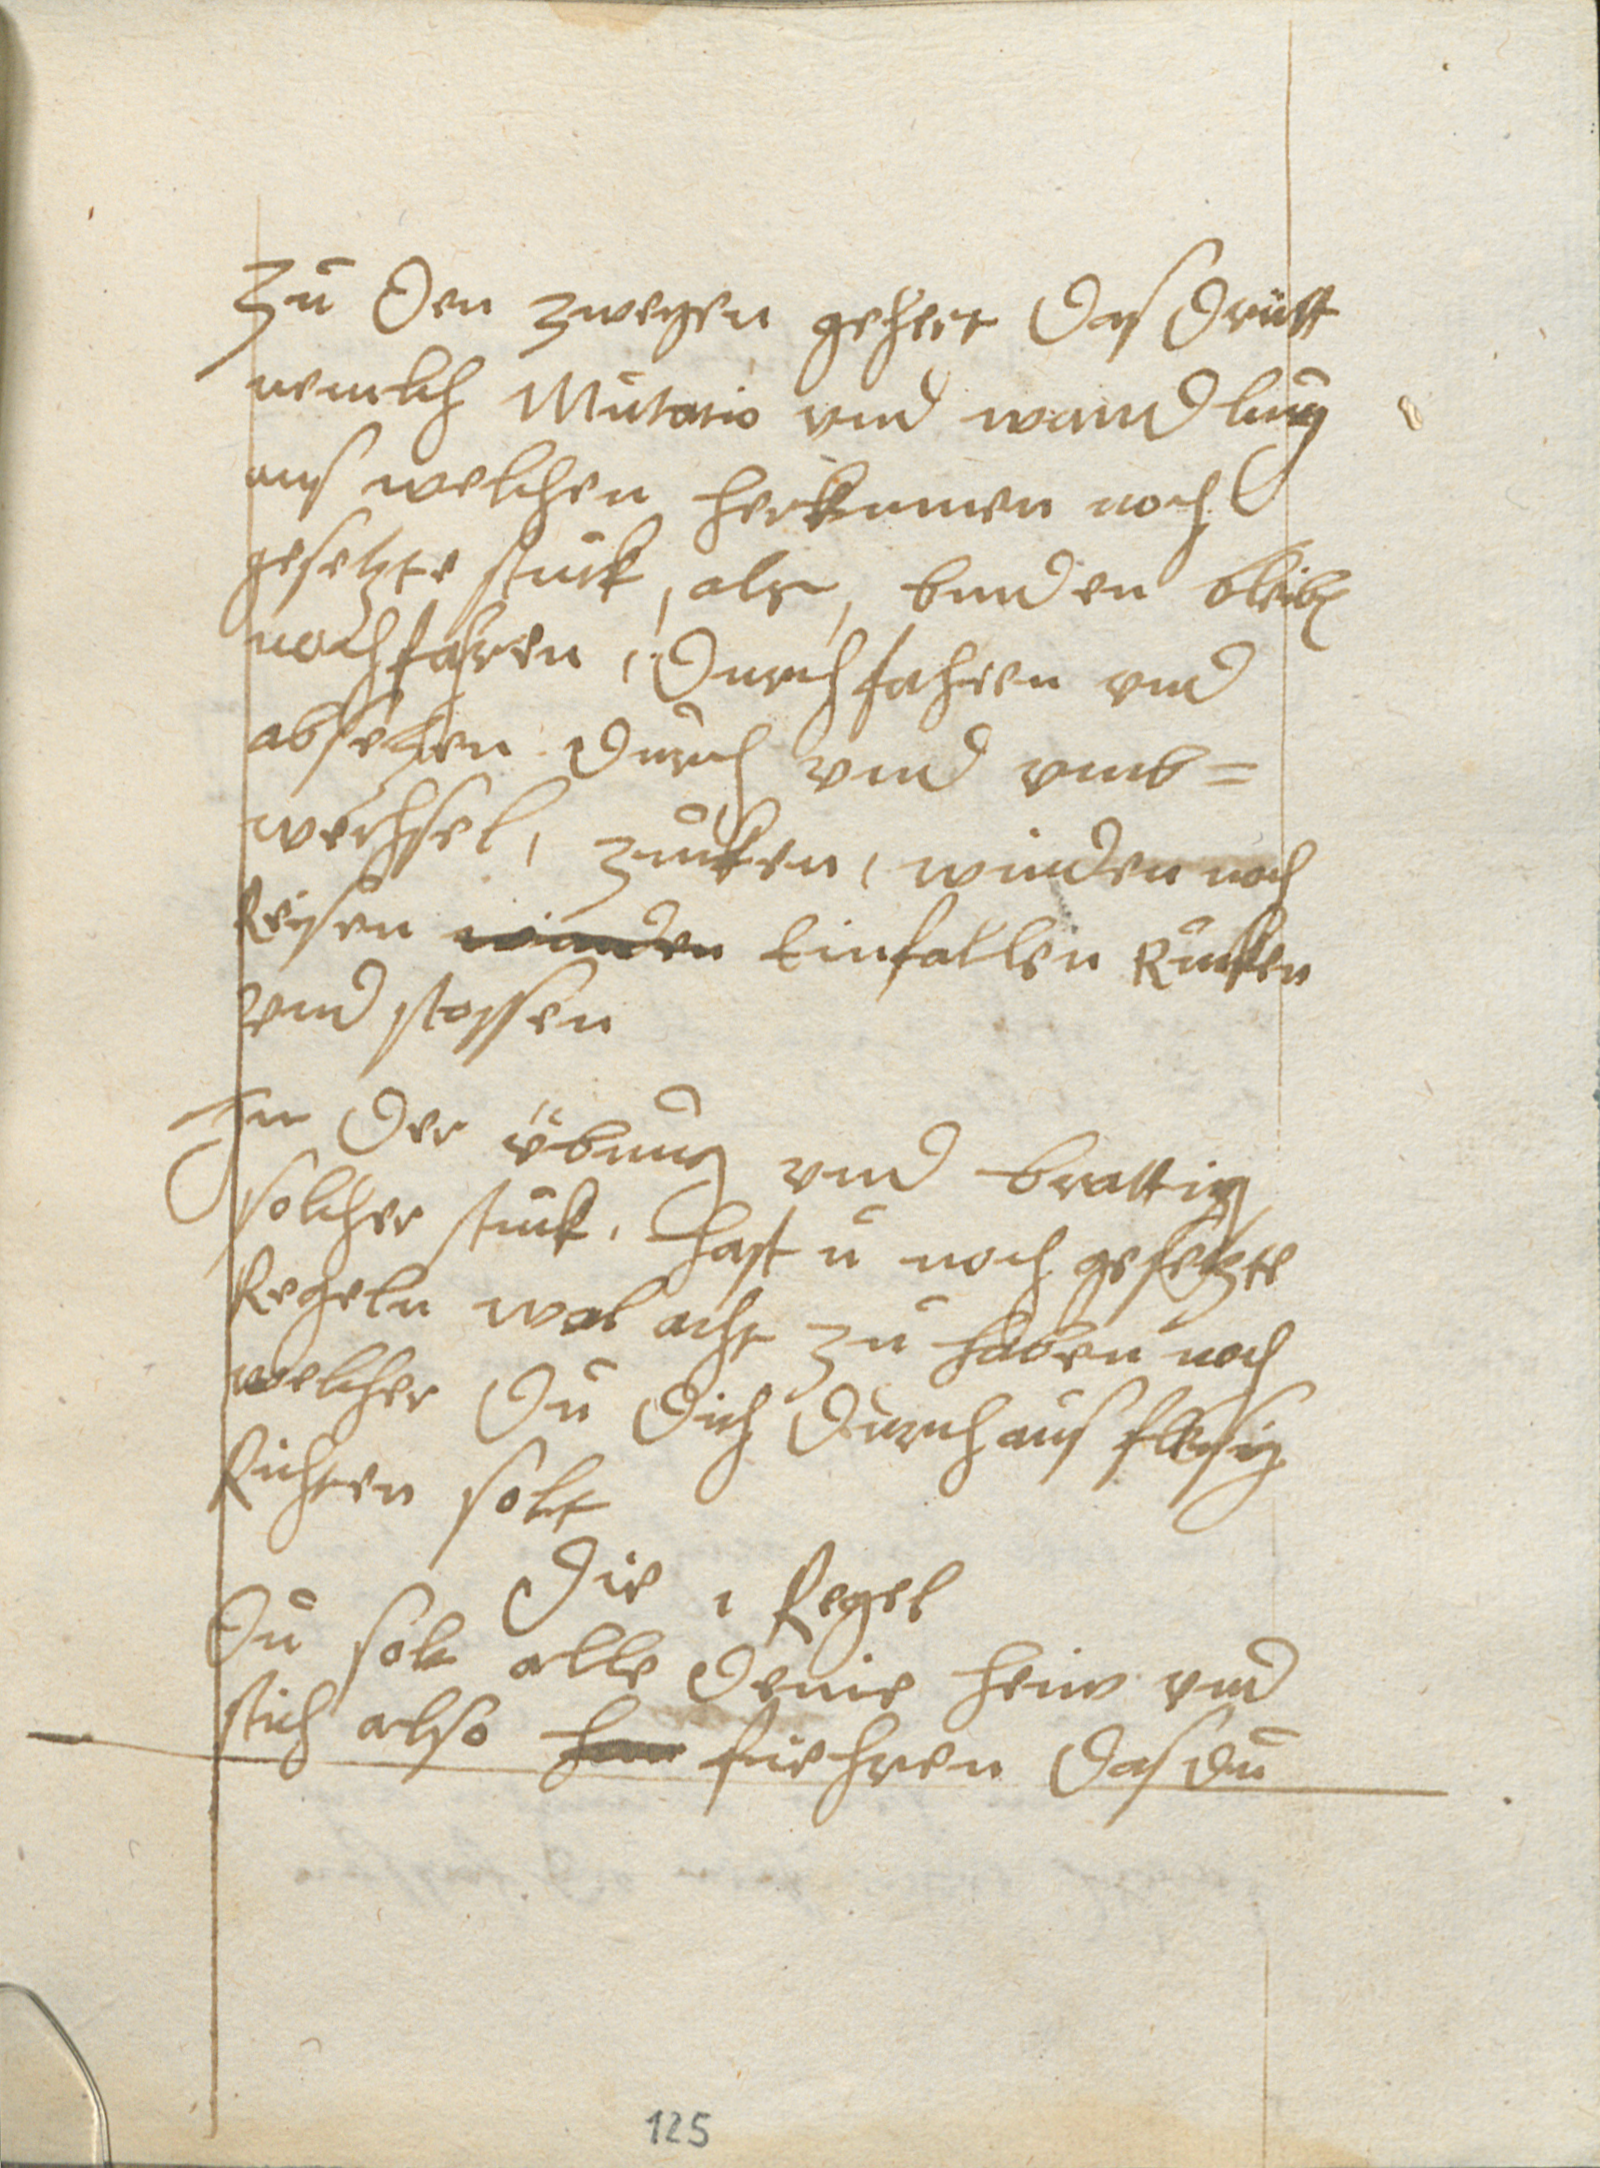 Zu den zweyen gehert das dritt
nemlich Mutatio vnd wandlung
aus welchen herkumen noch
gesetzte stuck, als, binden bleib
nachfahren, durchfahren vnd
absetzen durch vnd vmb=
wechsel, zucken, winden noch
Reisen winden Einfallen Rucken
vnd stossen
In der übung vnd brattig
solcher stuck, hast u noch gesetzte
Regeln wol acht zu haben noch
welcher du dich durchaus flesig
Richten solt
Die 1 Regel
Du solt alle deine heuw vnd
stich also fiehren das du
125